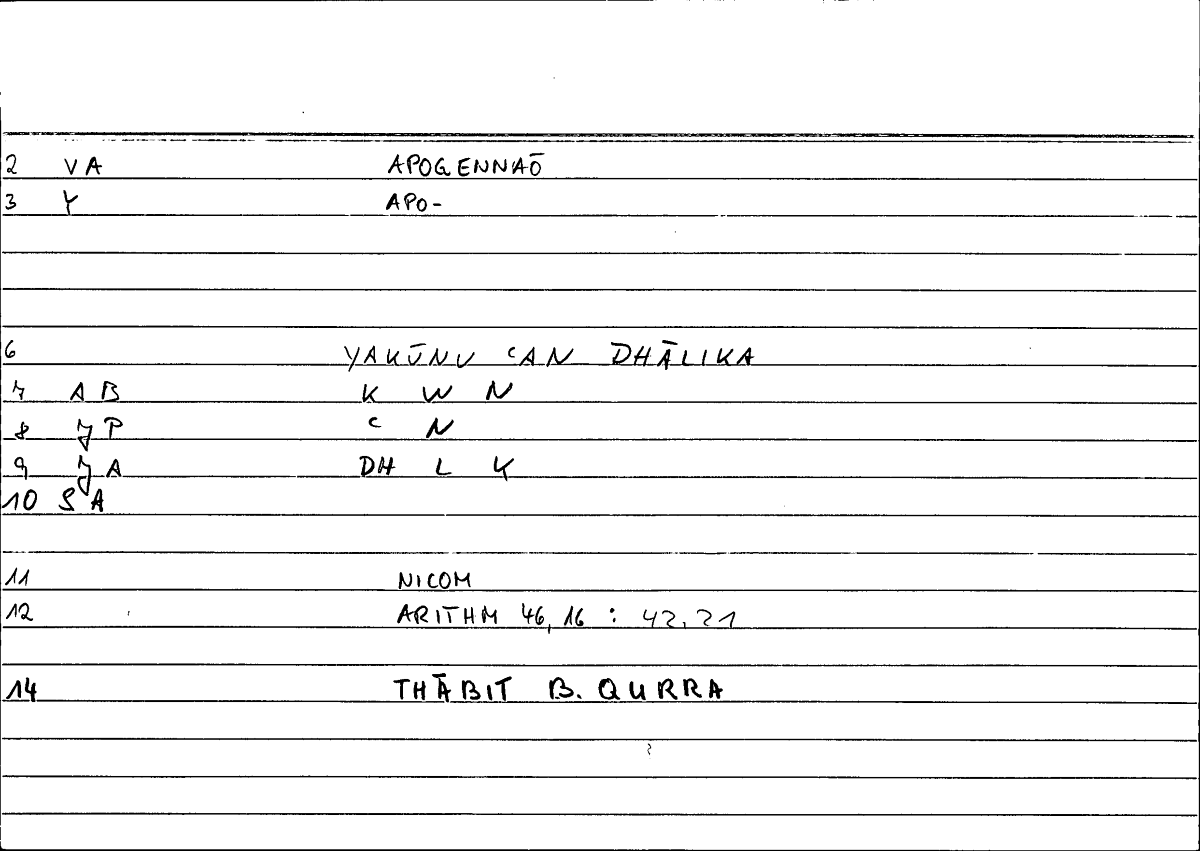 2 VA APOGENNAŌ
3 Y APO-
6 YAKŪNU ᶜAN DHĀLIKA
7 AB K W N
8 JP ᶜ N
9 JA DH L K
10 SA
11 NICOM
12 ARITHM 46,16 : 42,21
14 THĀBIT B. QURRA